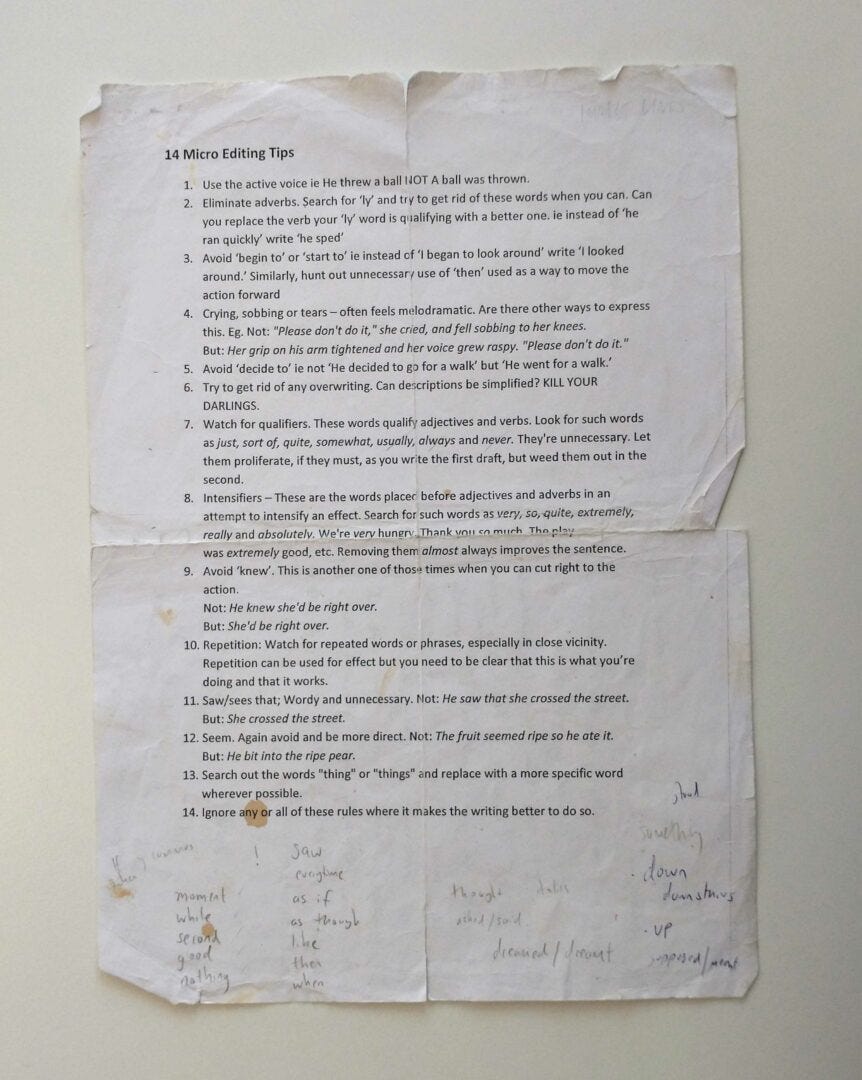 14 Micro Editing Tips
1. Use the active voice ie He threw a ball NOT A ball was thrown.
2. Eliminate adverbs. Search for ‘ly’ and try to get rid of these words when you can. Can
you replace the verb your ‘ly’ word is qualifying with a better one. ie instead of ‘he
ran quickly’ write ‘he sped’
3. Avoid ‘begin to’ or ‘start to’ ie instead of ‘I began to look around’ write ‘I looked
around.’ Similarly, hunt out unnecessary use of ‘then’ used as a way to move the
action forward
4. Crying, sobbing or tears – often feels melodramatic. Are there other ways to express
this. Eg. Not: "Please don't do it," she cried, and fell sobbing to her knees.
But: Her grip on his arm tightened and her voice grew raspy. "Please don't do it."
5. Avoid ‘decide to’ ie not ‘He decided to go for a walk’ but ‘He went for a walk.’
6. Try to get rid of any overwriting. Can descriptions be simplified? KILL YOUR
DARLINGS.
7. Watch for qualifiers. These words qualify adjectives and verbs. Look for such words
as just, sort of, quite, somewhat, usually, always and never. They're unnecessary. Let
them proliferate, if they must, as you write the first draft, but weed them out in the
second.
8. Intensifiers – These are the words placed before adjectives and adverbs in an
attempt to intensify an effect. Search for such words as very, so, quite, extremely,
really and absolutely. We're very hungry. Thank you so much. The play
was extremely good, etc. Removing them almost always improves the sentence.
9. Avoid ‘knew’. This is another one of those times when you can cut right to the
action.
Not: He knew she'd be right over.
But: She'd be right over.
10. Repetition: Watch for repeated words or phrases, especially in close vicinity.
Repetition can be used for effect but you need to be clear that this is what you’re
doing and that it works.
11. Saw/sees that; Wordy and unnecessary. Not: He saw that she crossed the street.
But: She crossed the street.
12. Seem. Again avoid and be more direct. Not: The fruit seemed ripe so he ate it.
But: He bit into the ripe pear.
13. Search out the words "thing" or "things" and replace with a more specific word
wherever possible.
14. Ignore any or all of these rules where it makes the writing better to do so.
something
! Saw
everytime
moment
while
second
good
nothing
as if
as though
like
then
when
thought
asked/said
dreamed/dreamt
. down
downstairs
. up
supposed/meant